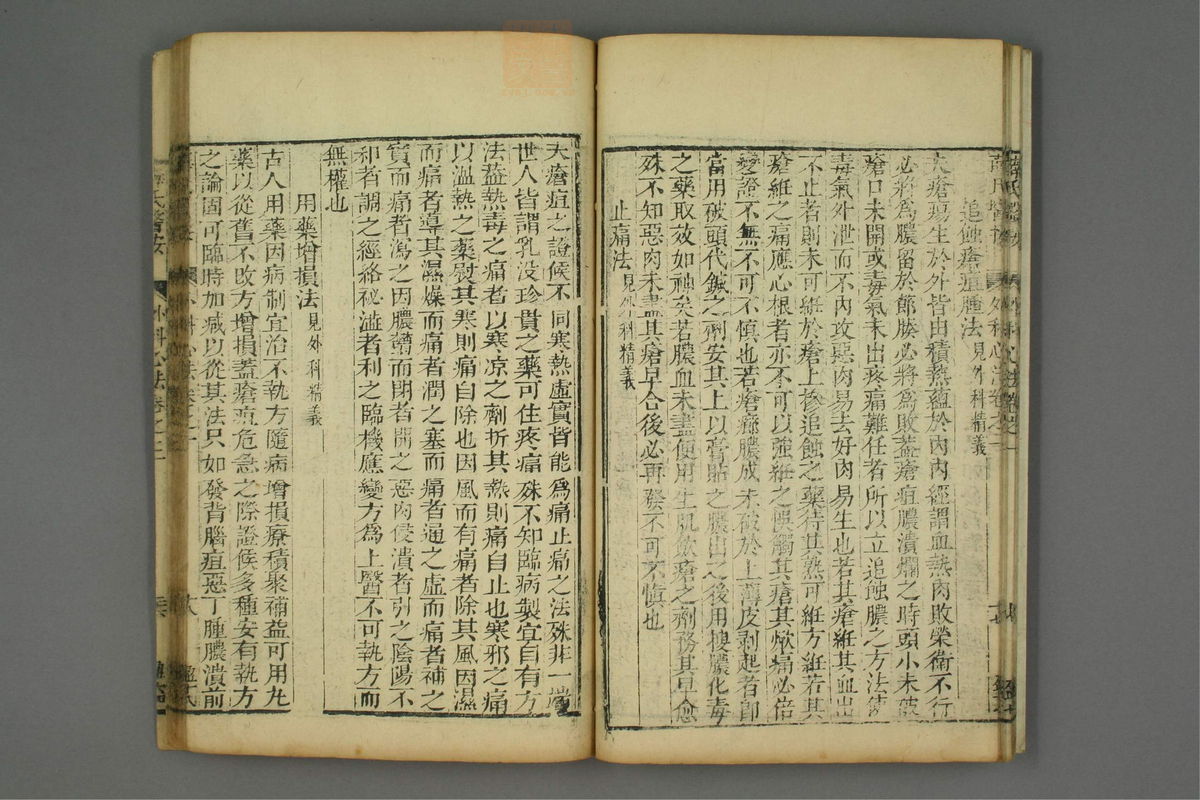 追蝕瘡疽腫法 見外科精義
夫瘡瘍生於外皆由積熱蘊於內內經謂血熱肉敗榮衛不行
必將為膿留於節腠必將為敗蓋瘡疽膿潰爛之時頭小未破
瘡口未開或毒氣未出疼痛難任者所以立追蝕膿之方法使
毒氣外泄而不內攻惡肉易去好肉易生也若其瘡紝其血出
不止者則未可紝於瘡上摻追蝕之藥待其熟可紝方紝若其
瘡紝之痛應心根者亦不可以強紝之悞觸其瘡其焮痛必倍
變證不無不可不慎也若瘡癤膿成未破於上薄皮剥起者即
當用破頭代鍼之劑安其上以膏貼之膿出之後用搜膿化毒
之藥取效如神矣若膿血未盡便用生肌歛瘡之劑務其早愈
殊不知惡肉未盡其瘡早合後必再發不可不慎也
止痛法 見外科精義
夫瘡疽之證候不同寒熱虛實皆能為痛止痛之法殊非一端
世人皆謂乳没珍貴之藥可住疼痛殊不知臨病製宜自有方
法蓋熱毒之痛者以寒凉之劑折其熱則痛自止也寒邪之痛
以溫熱之藥熨其寒則痛自除也因風而有痛者除其風因濕
而痛者導其濕燥而痛者潤之塞而痛者通之虛而痛者補之
實而痛者瀉之因膿鬱而閉者開之惡肉侵潰者引之陰陽不
和者調之經絡祕澁者利之臨機應變方為上醫不可執方而
無權也
用藥增損法 見外科精義
古人用藥因病制宜治不執方隨病增損療積聚補益可用九
藥以從舊不改方增損蓋瘡疽危急之際證候多種安有執方
之論固可臨時加减以從其法只如發背腦疽惡丁腫膿潰前